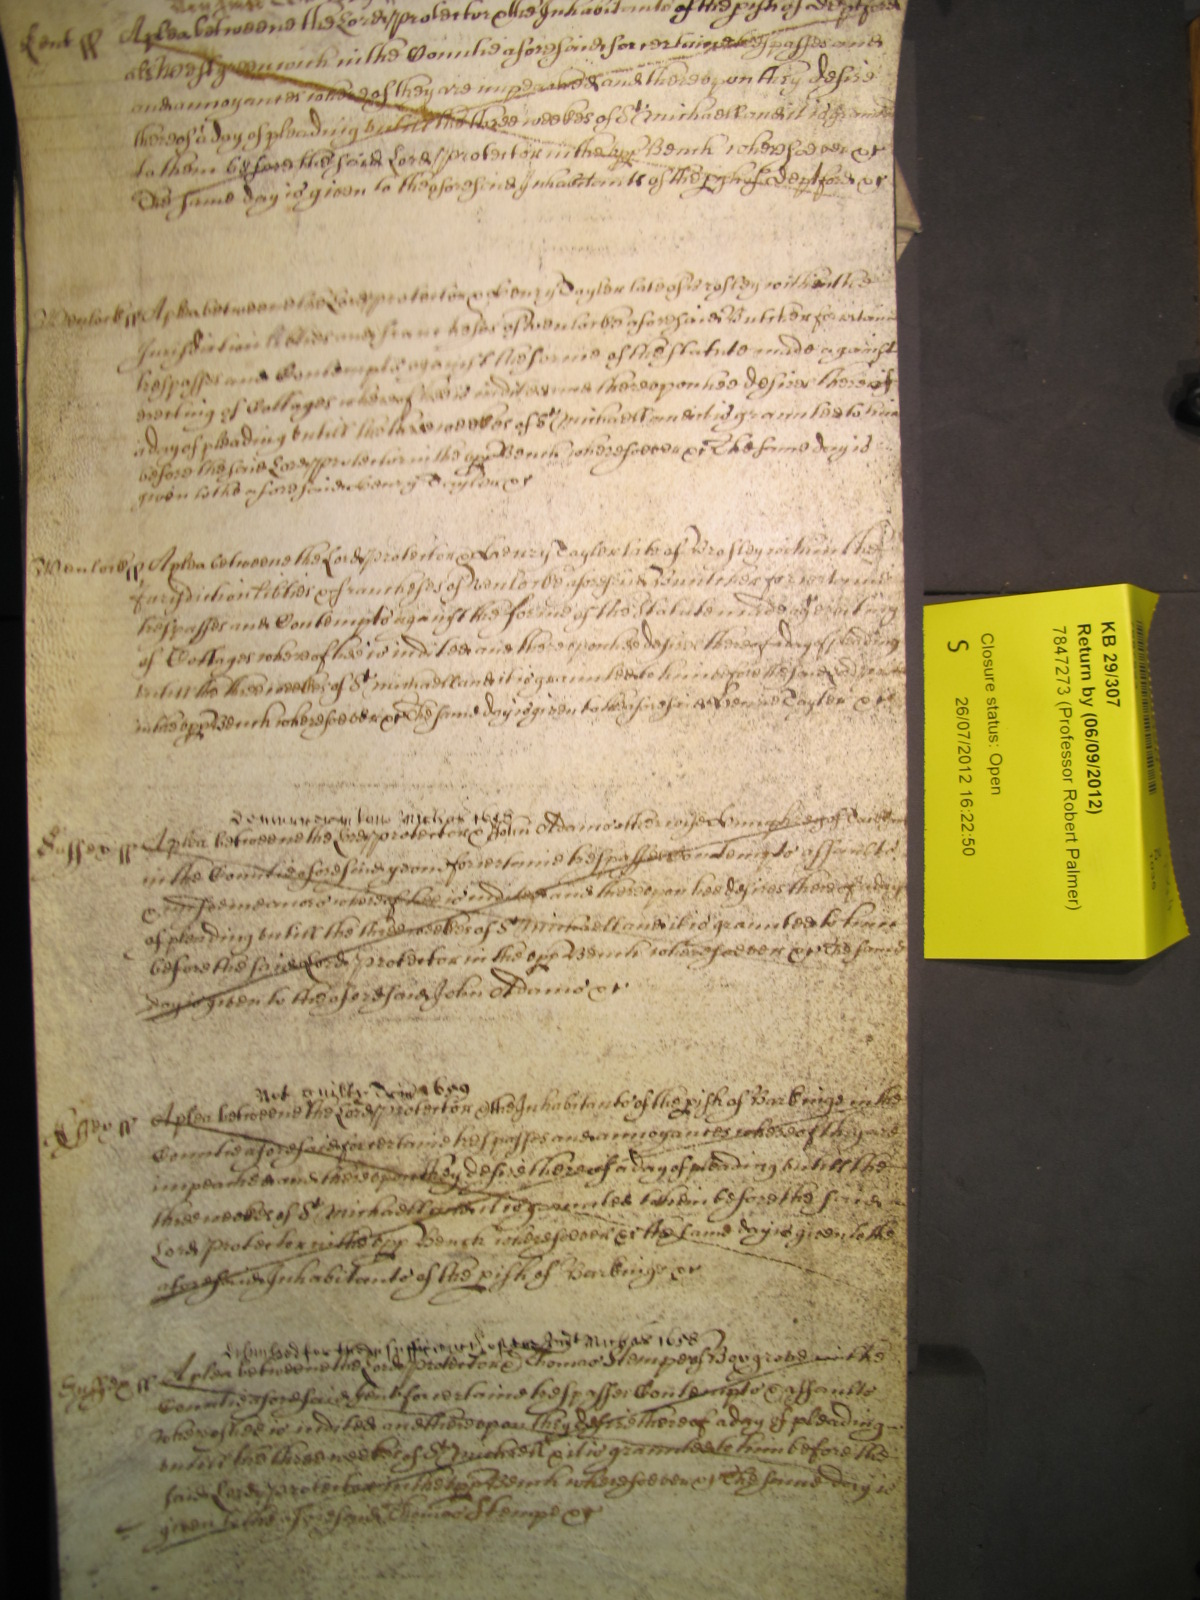 Kent ss A plea betweene the Lord Protector & the Inhabitants of the pish of Deptford
als west greenwich in the Countie aforesaid for certaine trespasses and
and annoyances whereof they are impeached and thereupon they desire
thereof a day of pleading untill the three weekes of St Michaell and it is graunted
to them before the said Lord Protector in the upp Bench wheresoever &c
The same day is given to the aforesaid Inhabitants of the pish of Deptford &c
Wenlock ss A plea betweene the Lord Protector & Henry Taylor late of Brosley within the
Jurisdiction libties and franchesies of Wenlocke aforesaid Butcher for certaine
trespasses and Contempts against the forme of the Statute made against
erecting of Cottages whereof hee is indited and thereupon hee desires thereof
a day of pleading untill the three weekes of St Michaell and it is graunted to him
before the said Lord Protector in the upp Bench wheresoever &c The same day is
given to the aforesaid Henry Taylor &c
Wenlock ss A plea betweene the Lord Protector & Henry Tayler late of Brosley within the
Jurisdiction libties & francheses of Wenlocke aforesaid Butcher for certaine
trespasses and Contempts against the forme of the Statute made
of Cottages whereof hee is indited and thereupon hee desires thereof a day of pleading
untill the three weekes of St Michaell and it is graunted to him before the said Lord
in the upp Bench wheresoever &c The same day is given to the aforesaid Henrie Tayler &c
Michas 1658
Sussex ss A plea betweene the Lord Protector & John Adams otherwise
in the Countie aforesaid yeom for certaine trespasses Contempts assaults
& misdemeanors whereof hee is indited and thereupon hee desires thereof a day
of pleading untill the three weekes of St Michaell and it is graunted to him
before the said Lord Protector in the upp Bench wheresoever &c The same
day is given to the aforesaid John Adams &c
Not guilty 1659
Essex ss A plea betweene the Lord Protector & the Inhabitants of the pish of Barkinge in the
Countie aforesaid for certaine trespasses and annoyances whereof they are
impeached and thereupon they desire thereof a day of pleading untill the
three weekes of St Michaell and it is graunted to them before the said
Lord Protector in the upp Bench wheresoever &c the same day is given to the
aforesaid Inhabitants of the pish of Barkinge &c
discharged for the insufficiencie of the Indt Michas 1658
Sussex ss A plea betweene the Lord Protector & Thomas Stempe of Boxgrove in the
Countie aforesaid gent for certaine trespasses Contempts & assaults
whereof hee is indited and thereupon they desire thereof a day of pleading
untill the three weekes of St Michaell & it is graunted to him before the
said Lord Protector in the upp Bench wheresoever &c The same day is
given to the aforesaid Thomas Stempe &c
KB 29/307
Return by (06/09/2012)
7847273 (Professor Robert Palmer)
Closure status: Open
S 26/07/2012 16:22:50